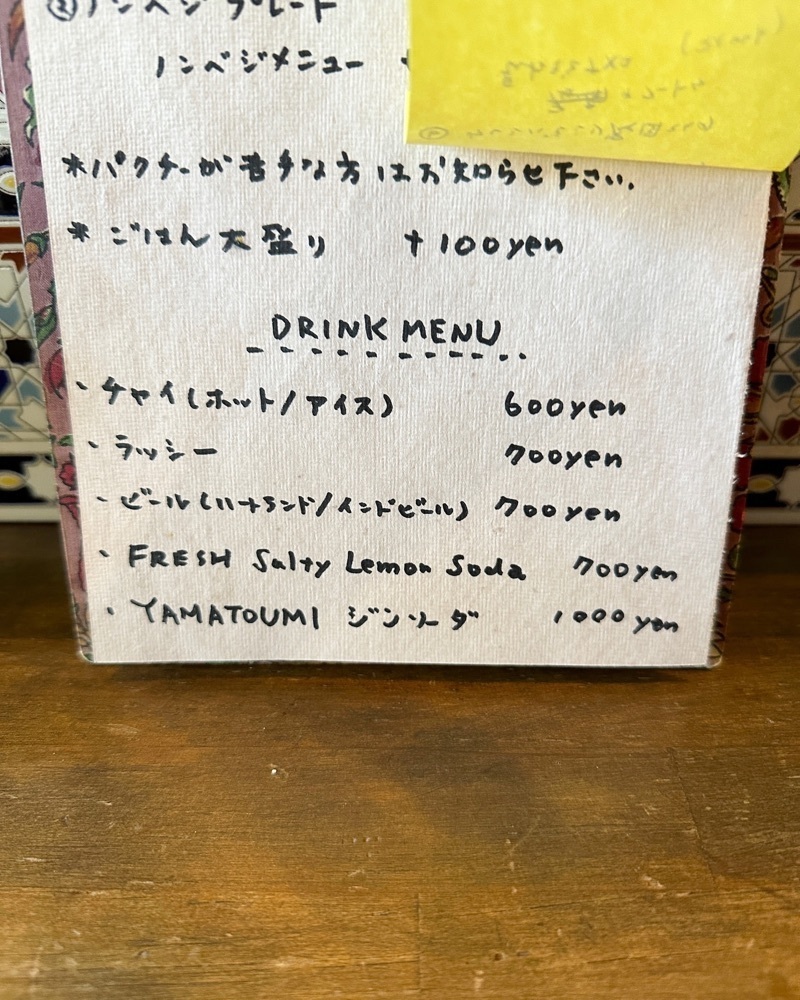 ② ノンベジプレート
ノンベジメニュー
*パクチーが苦手な方はお知らせ下さい.
* ごはん大盛り +100yen
DRINK MENU
・チャイ(ホット/アイス) 600yen
・ラッシー 700yen
・ビール(ハートランド/インドビール) 700yen
・FRESH Salty Lemon Soda 700yen
・YAMATOUMI ジンソーダ 1000yen